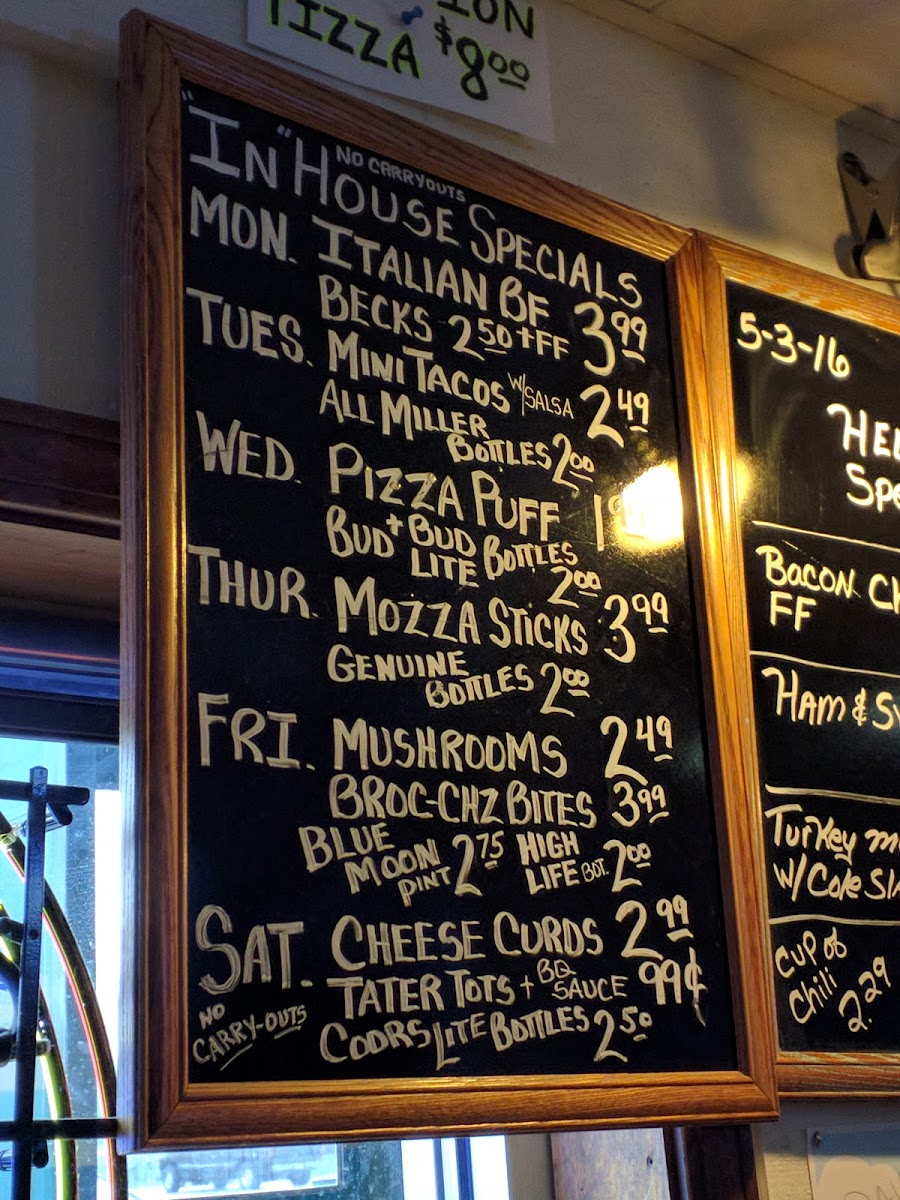 PIZZA $8.00
"IN" HOUSE SPECIALS
NO CARRYOUTS
MON. ITALIAN BF 3.99
BECKS 2.50 + FF
TUES. MINI TACOS W/SALSA 2.49
ALL MILLER
BOTTLES 2.00
WED. PIZZA PUFF
BUD + BUD
LITE BOTTLES
2.00
THUR. MOZZA STICKS 3.99
GENUINE
BOTTLES 2.00
FRI. MUSHROOMS 2.49
BROC-CHZ BITES 3.99
BLUE
MOON
PINT 2.75 HIGH
LIFE BOT. 2.00
SAT. CHEESE CURDS 2.99
TATER TOTS + BQ
SAUCE 99¢
COORS LITE BOTTLES 2.50
NO
CARRY-OUTS
5-3-16
BACON
FF
HAM &
TURKEY
W/COLE
CUP OF
CHILI
2.29